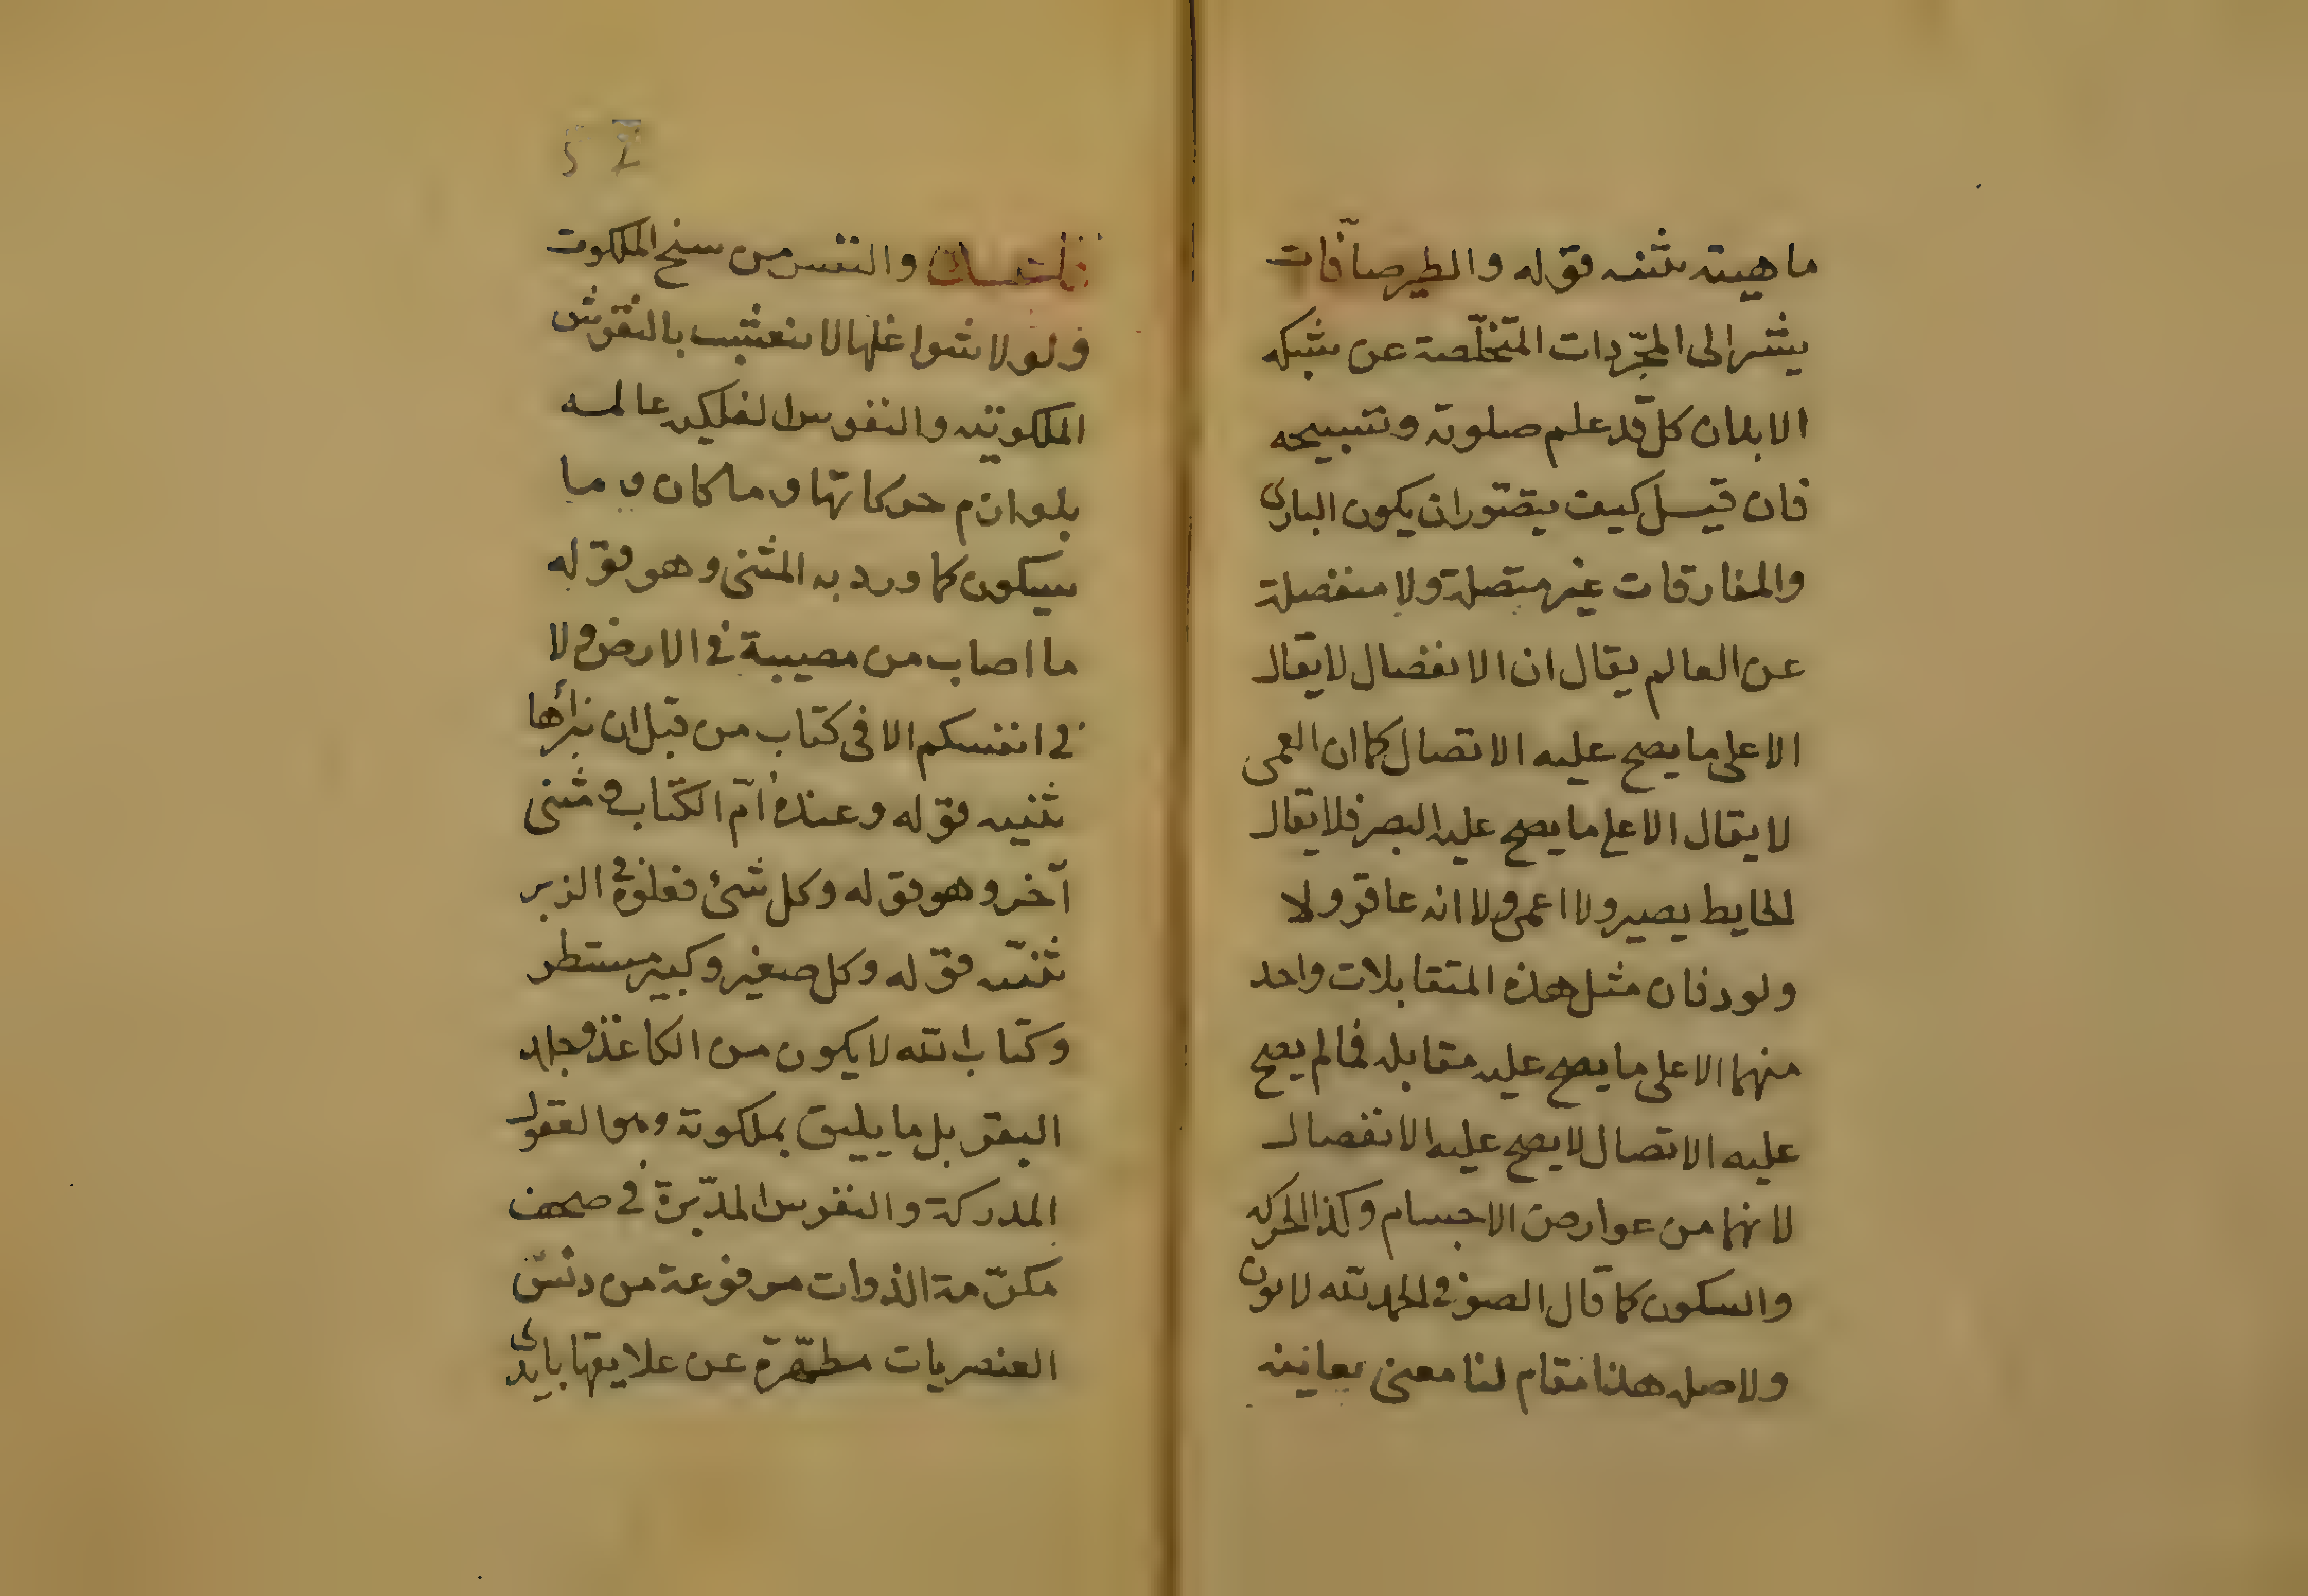 ماهيته ثنيه قوله والطير صآفات
يشير الى المجّردات المتخلّصة عن شبكه
الابدان كل قد علم صلوته وتسبيحه
فان قيل كيف يتصور ان يكون البارى
والمفارقات غير متصلة ولا منفصلة
عن العالم يقال ان الانفصال لا يقال
الا على ما يصح عليه الاتصال كما ان العمى
لا يقال الا على ما يصح عليه البصر فلا يقال
للحايط بصير ولا اعمى ولا انه عاقر ولا
ولود فان مثل هذه المتقابلات واحد
منهما الا على ما يصح عليه مقابله فما لم يصح
عليه الاتصال لا يصح عليه الانفصال
لانهما من عوارض الاجسام وكذا الحركه
والسكون كما قال الصوفي الحمد لله لا لون
ولا صله هذا مقام لنا معنى بعانيه
والنفس من سنخ الملكوت
ولولا شواغلها لانتعشت بالنقوش
الملكوتيه والنفوس الفلكيه عالمه
بلوازم حركاتها وما كان وما
سيكون كما ورد به المثنى وهو قوله
ما اصاب من مصيبة في الارض ولا
في انفسكم الا فى كتاب من قبل ان نبرأها
ثنيه قوله وعنده امّ الكتاب و مثنى
آخر وهو قوله وكل شئ فعلوه في الزبر
ثنيّه قوله وكل صغير وكبير مستطر
وكتاب الله لا يكون من الكاغذ وجلد
البقر بل ما يليق بملكوته وهو العقول
المدركة والنفوس المدّبرة في صحف
مكرّمة الذوات مرفوعة من دنس
العنصريات مطهّرة عن علايقها بايدى